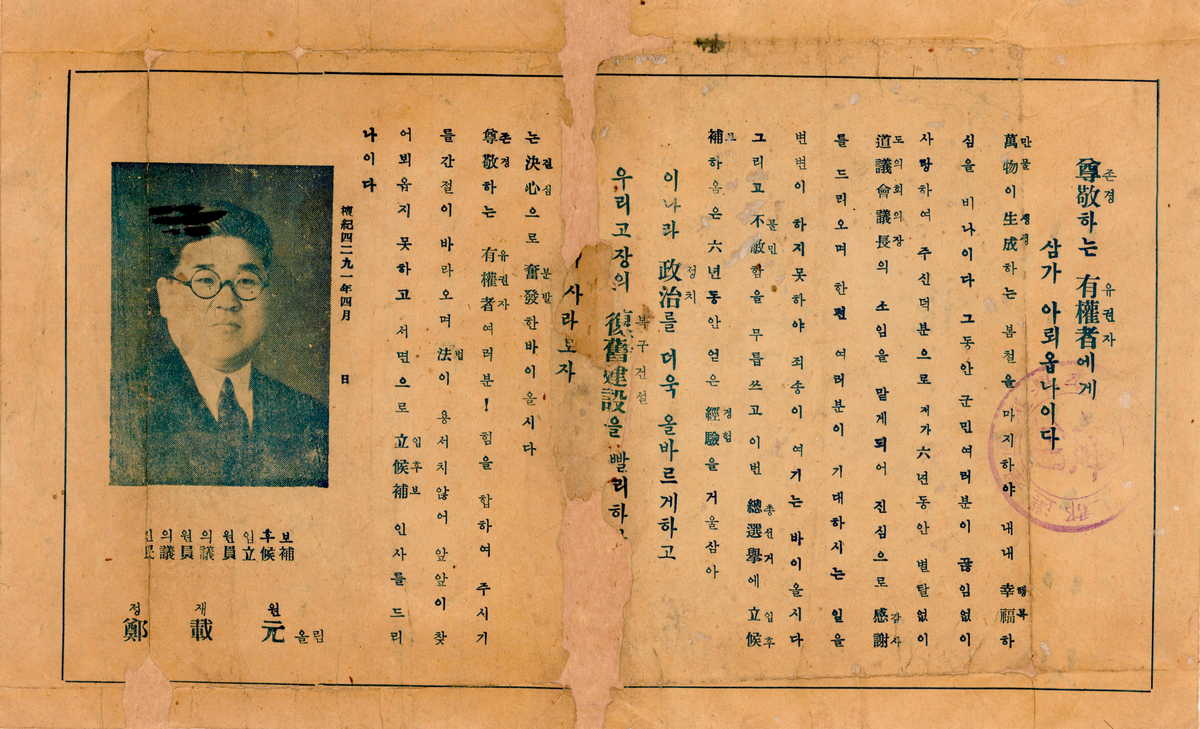 존경 유권자
尊敬하는 有權者에게
삼가 아뢰옵나이다
만물 생성 행복
萬物이 生成하는 봄철을 마지하야 내내 幸福하
심을 비나이다 그동안 군민여러분이 끊임없이
사랑하여 주신덕분으로 저가 六년동안 별탈없이
도의회의장 감사
道議會議長의 소임을 맡게되어 진심으로 感謝
를 드리오며 한편 여러분이 기대하시는 일을
변변이 하지못하야 죄송이 여기는 바이올시다
불민 총선거 입후
그리고 不敏함을 무릅쓰고 이번 總選擧에 立候
보 경험
補하옴은 六년동안 얻은 經驗을 거울삼아
정치
이나라 政治를 더욱 올바르게하고
복구건설
우리고장의 復舊建設을 빨리하고
사라보자
결심 분발
는 決心으로 奮發한바이올시다
존경 유권자
尊敬하는 有權者여러분! 힘을 합하여 주시기
법
를간절이바라오며 法이 용서치않어 앞앞이 찾
입후보
어뵈옵지 못하고 서면으로 立候補 인사를 드리
나이다
檀紀四二九一年四月 日
의원의원입후보
議員議員立候補
정 재 원
鄭 載 元 올림